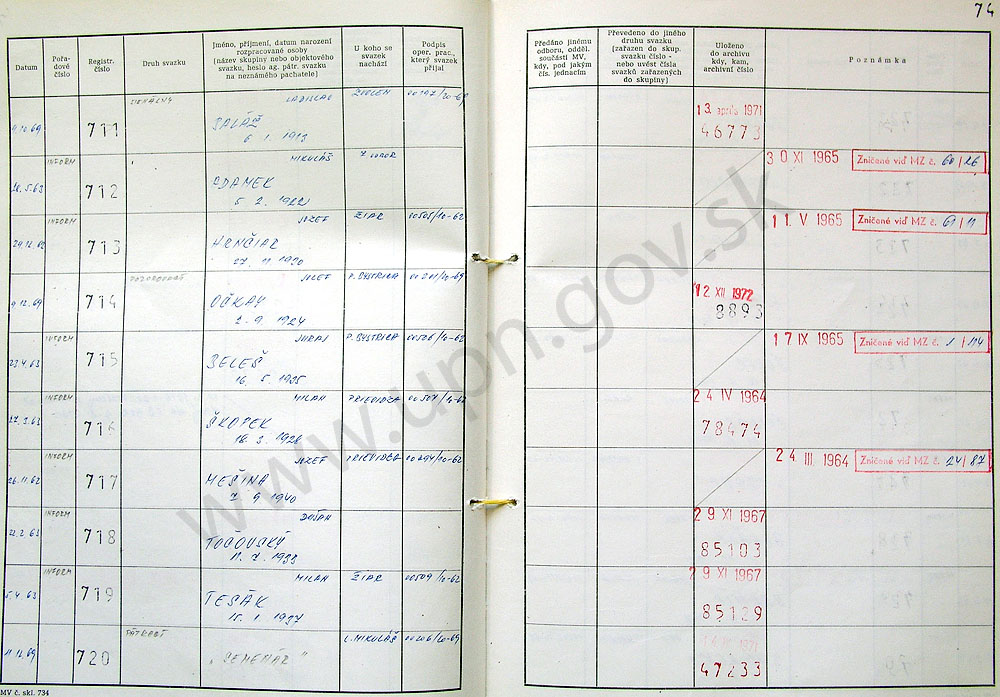 74
Datum
Pořadové číslo
Registr. číslo
Druh svazku
Jméno, příjmení, datum narození
rozpracované osoby
(název skupiny nebo objektového
svazku, heslo ag. pátr. svazku
na neznámého pachatele)
U koho se
svazek
nachází
Podpis
oper. prac.,
který svazek
přijal
Předáno jinému
odboru, odděl.
součásti MV,
kdy, pod jakým
čís. jednacím
Převedeno do jiného
druhu svazku
(zařazen do skup.
svazku číslo -
nebo uvést čísla
svazků zařazených
do skupiny)
Uloženo
do archivu
kdy, kam,
archivní číslo
Poznámka
9.10.69 711 SIGNÁLNY LADISLAV ZVOLEN
SALÁŽ
6. 1. 1913
13. apríla 1971
46773
INFORM MIKULÁŠ
712
5. 2. 1922
30 XI 1965 Zničené viď MZ č. 60/26
INFORM JOZEF ŽIAR 00505/10-62
713 HRNČIAR
27. 11. 1930
11. V 1965 Zničené viď MZ č. 61/11
POZOROVACÍ JOZEF P. BYSTRICA 00201/20-69
9.12.69 714 OČKAY
2. 9. 1924
12 XII 1972
8893
INFORM JURAJ P. BYSTRICA 00506/10-62
23.4.63 715 BELEŠ
16. 5. 1935
17 IX 1965 Zničené viď MZ č. 1/114
INFORM MILAN PRIEVIDZA 00507/10-62
27.3.63 716 ŠKOPEK
18. 3. 1928
24 IV 1964
78474
INFORM JOZEF PRIEVIDZA 00494/10-62
26.11.62 717 MEŠINA
7. 9. 1940
24 III 1964 Zničené viď MZ č. 24/87
INFORM DUŠAN
22.2.63 718 TOČOVSKÝ
11. 7. 1933
29 XI 1967
85103
INFORM MILAN ŽIAR 00509/10-62
5.4.63 719 TESÁK
15. 1. 1937
29 XI 1967
85129
PÁTRACÍ L. MIKULÁŠ 00206/20-69
11.12.69 720 „SEMENÁR"
47233
MV č. skl. 734
www.upn.gov.sk